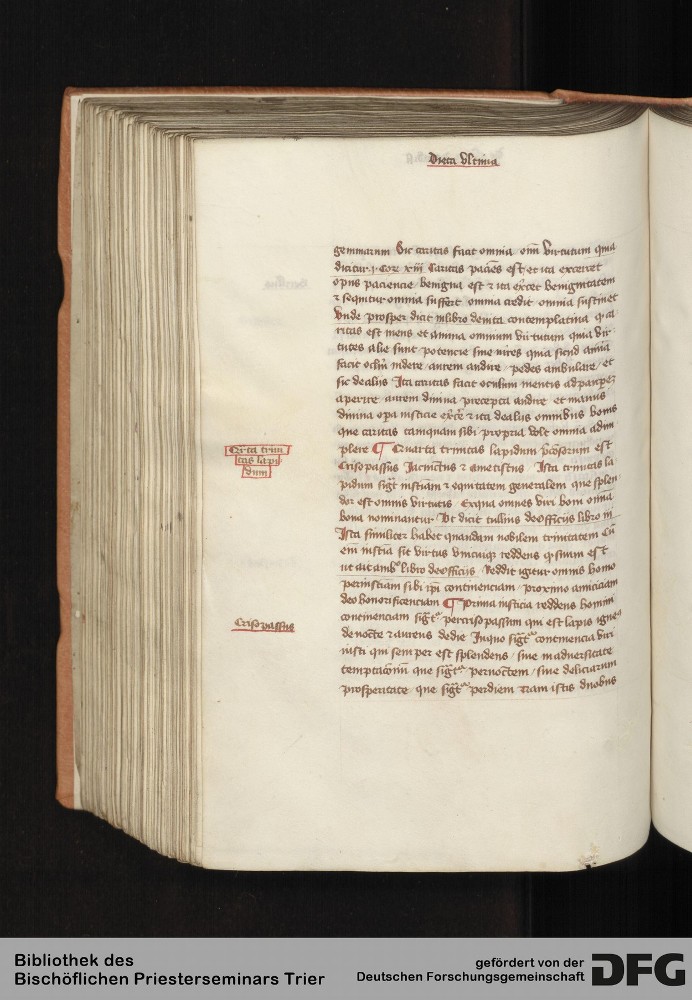 Dieta vltima
gemmarum Sic caritas facit omnia oīm virtutum quia
dicitur .j. Cor xiij Caritas paciēs est et ita exercet
opus paciencie benigna est ⁊ ita exc̄et benignitatem
⁊ sequitur omnia suffert omnia credit omnia sustinet
Vnde prosper dicit in libro de vita contemplatiua q ca
ritas est mens et anima omnium virtutum quia vir
tutes alie sunt potencie siue vires quia sicud anīa
facit oclm̄ videre aurem audire pedes ambulare et
sic de aliis Ita caritas facit oculum mentis ad paupeȝ
aperire aurem diuina precepta audire et manus
diuina opa iusticie exc̄e ⁊ ita de aliis omnibus bonis
que caritas tamquam sibi propria volt omnia adim
plere ¶ Quarta trinitas lapidum p̄cosorum est
Crisopassus Jacinctus ⁊ ametistus Ista trinitas la
pidum sigt̄ iusticiam ⁊ equitatem generalem que splen
dor est omnis virtutis Ex qua omnes viri boni om̄ia
bona nominantur Vt dicit tullius de officijs libro iij
Ista similiter habet quandam nobilem trinitatem Cū
em̄ iusticia sit virtus vnicuiqȝ reddens q suum est
ut ait ambro libro de officijs Reddit igitur omnis homo
per iusticiam sibi ip̄i continenciam proximo amiciciam
deo honorificenciam ¶ Prima iusticia reddens homini
continenciam sigt̄ per crisopassum qui est lapis igneus
de nocte ⁊ aureus de die In quo sigt̄ continencia viri
iusti qui semper est splendens siue in aduersitate
temptac̄onū que sigt̄ per noctem siue deliciarum
prosperitate que sigt̄ per diem Nam istis duobus
Qrta trini
tas lapi
dum
Crisopassus
Bibliothek des
Bischöflichen Priesterseminars Trier
gefördert von der
Deutschen Forschungsgemeinschaft
DFG